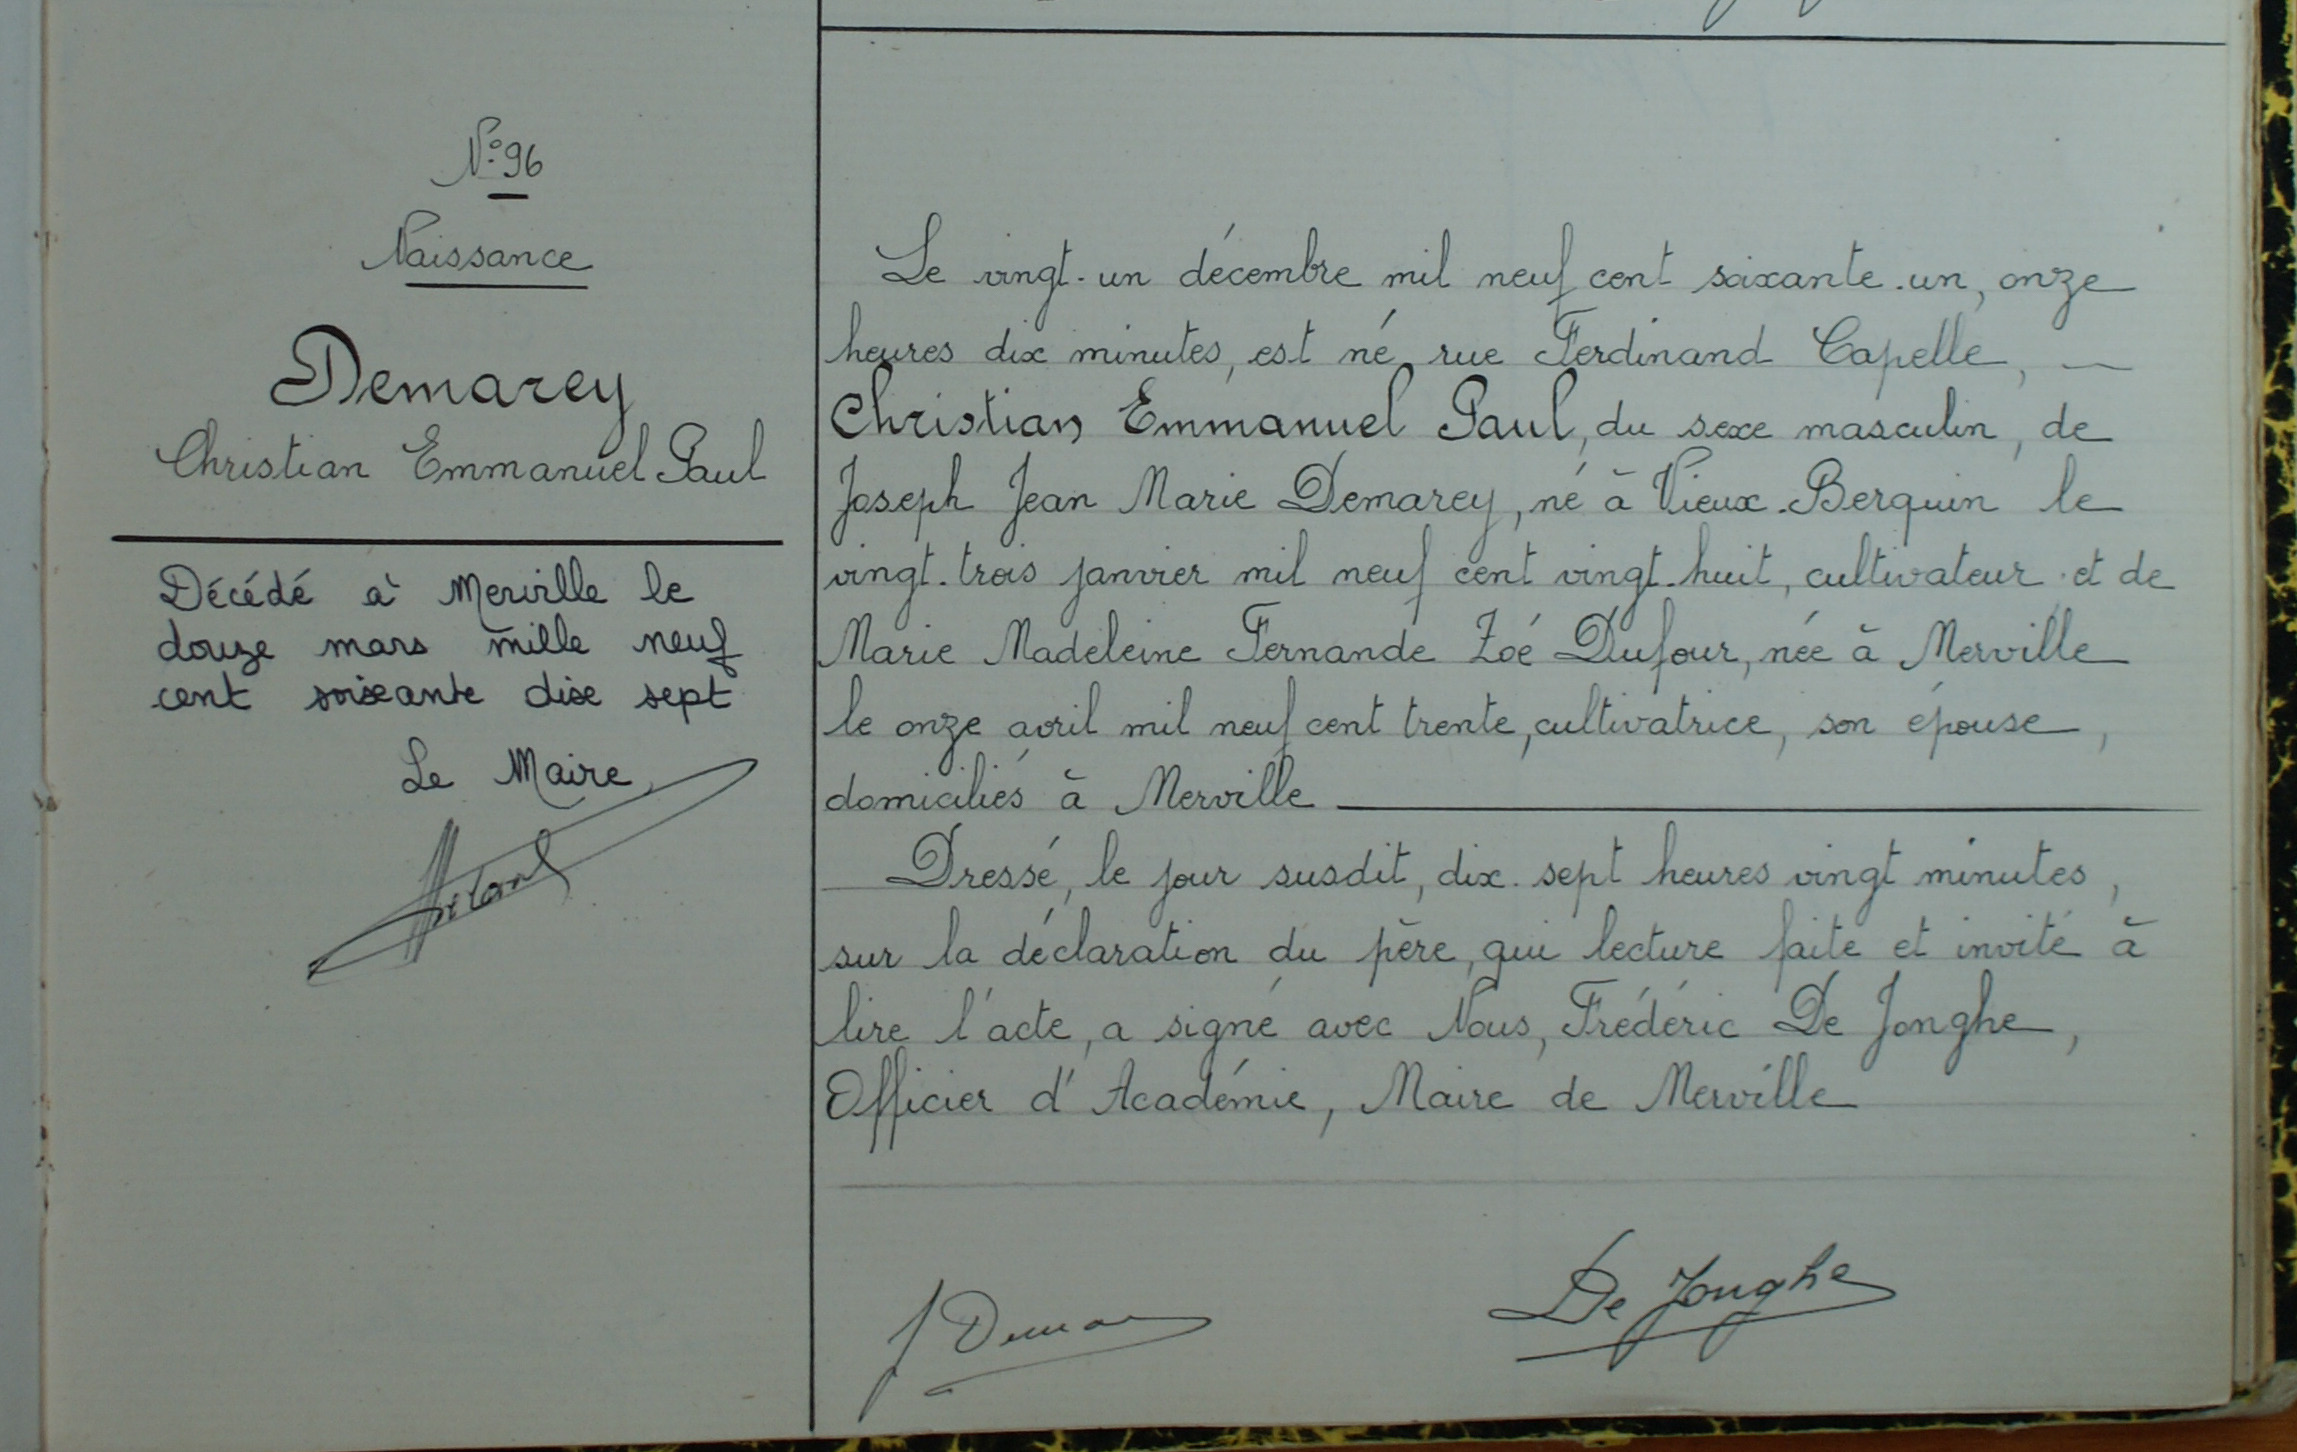 N° 96
Naissance
Demarey
Christian Emmanuel Paul
Décédé à Merville le
douze mars mille neuf
cent soixante dix sept
Le Maire,
Le vingt-un décembre mil neuf cent soixante-un, onze
heures dix minutes, est né, rue Ferdinand Capelle, —
Christian Emmanuel Paul, du sexe masculin, de
Joseph Jean Marie Demarey, né à Vieux-Berquin le
vingt-trois janvier mil neuf cent vingt-huit, cultivateur et de
Marie Madeleine Fernande Zoé Dufour, née à Merville
le onze avril mil neuf cent trente, cultivatrice, son épouse,
domiciliés à Merville
Dressé, le jour susdit, dix-sept heures vingt minutes,
sur la déclaration du père, qui lecture faite et invité à
lire l'acte, a signé avec Nous, Frédéric De Jonghe,
Officier d'Académie, Maire de Merville
De Jonghe